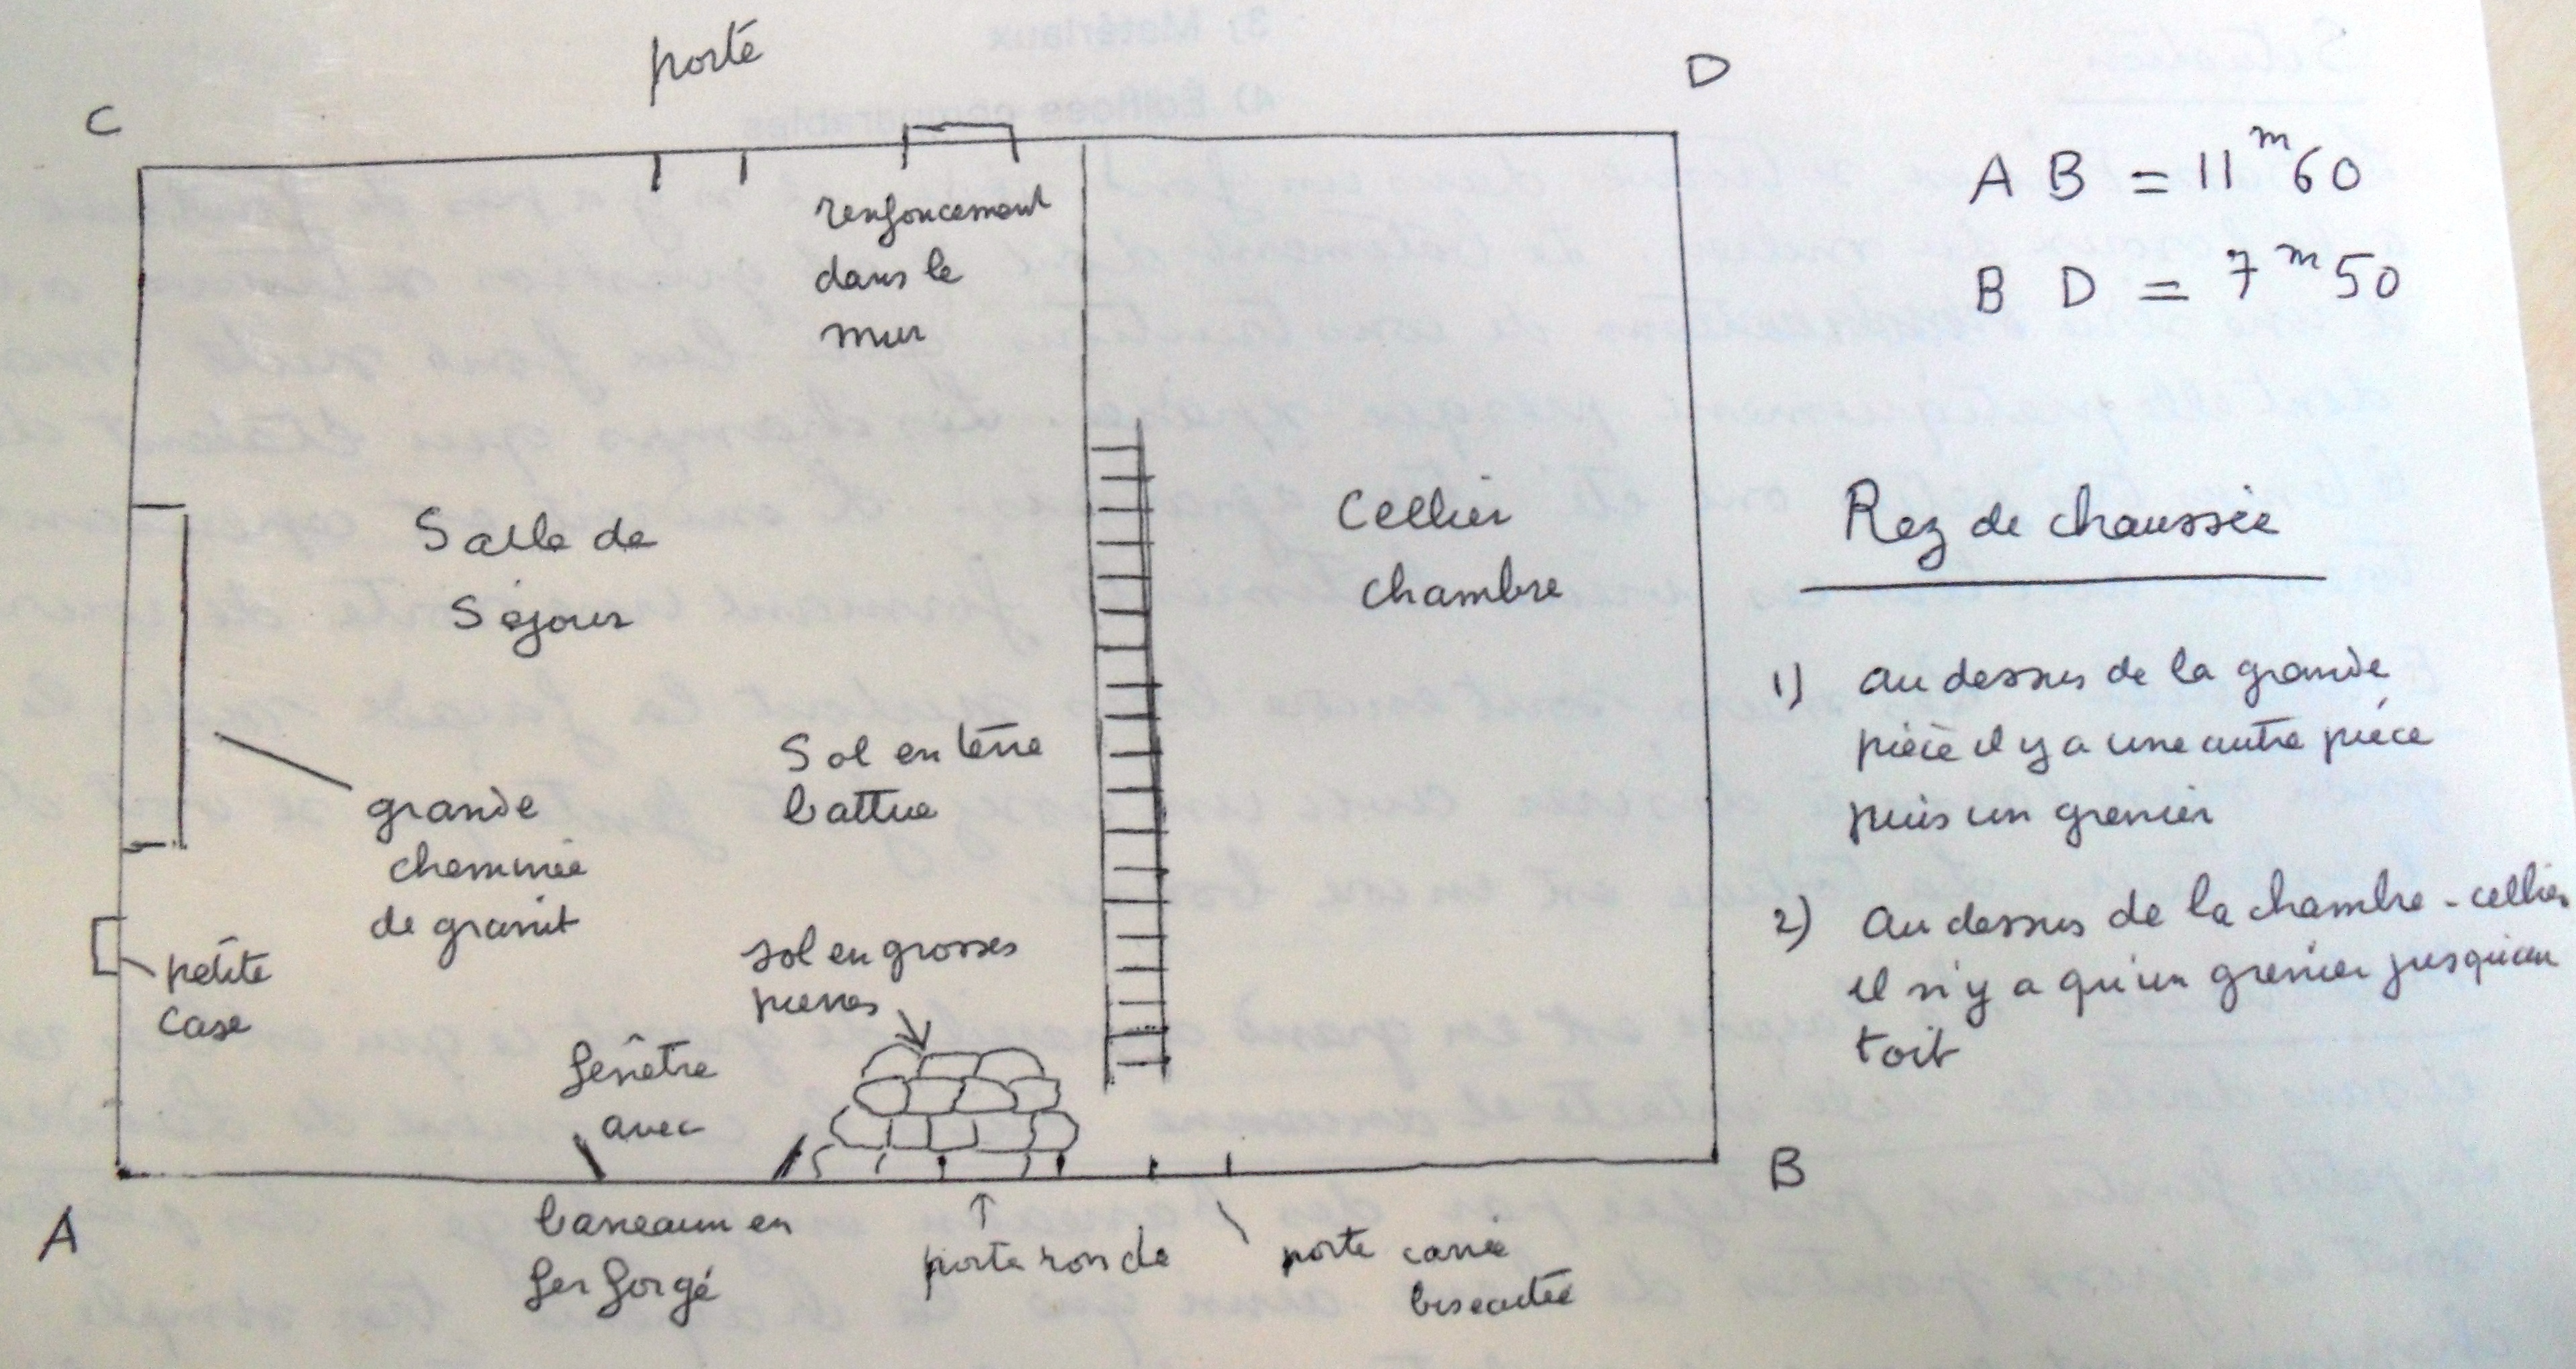 porte
C
D
renfoncement
dans le
mur
Salle de
Séjour
Cellier
chambre
Sol en terre
battue
grande
cheminée
de granit
petite
case
sol en grosses
pierres
fenêtre
avec
barreaux en
fer forgé
porte ronde
porte carrée
biseautée
A
B
AB = 11m60
BD = 7m50
Rez de chaussée
1) au dessus de la grande
pièce il y a une autre pièce
puis un grenier
2) au dessus de la chambre-cellier
il n'y a qu'un grenier jusqu'au
toit